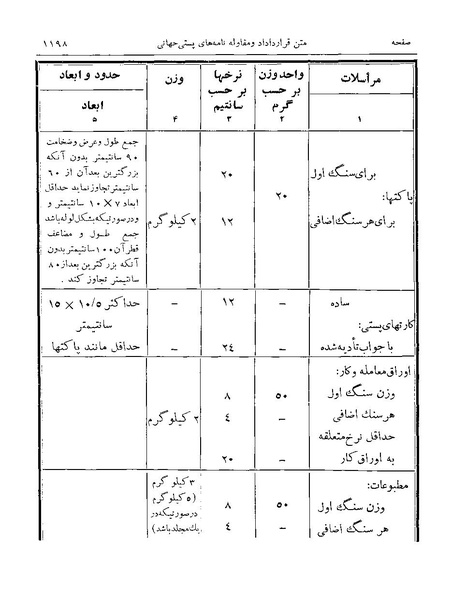 صفحه متن قرارداداد ومقاوله نامه‌های پستی جهانی ۱۱۹۸
مراسلات واحدوزن بر حسب گرم نرخها بر حسب سانتیم وزن حدود و ابعاد
ابعاد
۱ ۲ ۳ ۴ ۵
پاکتها:
برای سنگ اول ۲۰
۲۰
برای هر سنگ اضافی ۱۲ ۲ کیلو گرم
جمع طول و عرض و ضخامت
۹۰ سانتیمتر بدون آنکه
بزرگترین بعد آن از ۶۰
سانتیمتر تجاوز نماید حداقل
ابعاد ۷ × ۱۰ سانتیمتر و
ودرصورتیکه بشکل لوله باشد
جمع طول و مضاعف
قطر آن ۱۰۰ سانتیمتر بدون
آنکه بزرگترین بعد از ۸۰
سانتیمتر تجاوز کند .
کارتهای پستی:
ساده ۱۲ – حداکثر ۱۰/۵ × ۱۵
سانتیمتر
با جواب تأدیه شده ۲٤ – حداقل مانند پاکتها
اوراق معامله وکار:
وزن سنگ اول ۵۰ ۸
هر سنك اضافی – ٤ ۲ کیلو گرم
حداقل نرخ متعلقه
به اوراق کار ۲۰
مطبوعات:
وزن سنگ اول ۵۰ ۸
هر سنگ اضافی – ٤
۳ کیلو گرم
(۵ کیلوگرم
درصورتیکه در
یك مجلد باشد)